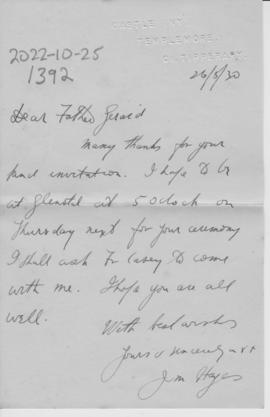 CASTLE
TEMPLEMORE,
CO. TIPPERARY.
2022-10-25
1392
26/5/30
Dear Father Gerard
Many thanks for your
kind invitation. I hope to be
at Glenstal at 5 oclock on
Thursday next for your ceremony
I shall ask Fr Casey to come
with me. I hope you are all
well.
With best wishes
Yours sincerely
Jim Hayes